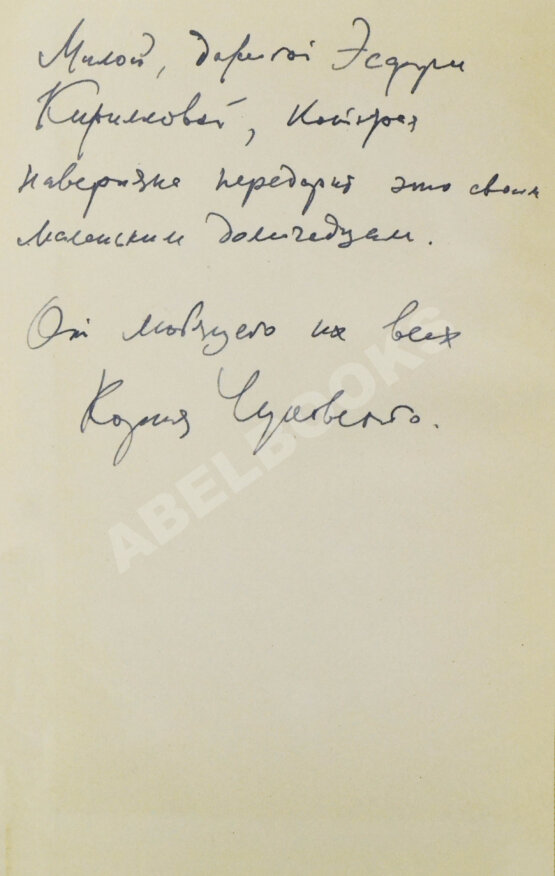 Милой, дорогой Эсфири
Кирилловой, которая
наверняка передарит это своим
маленьким домочадцам.
От любящего их всех
Корнея Чуковского.
ABELBOOKS